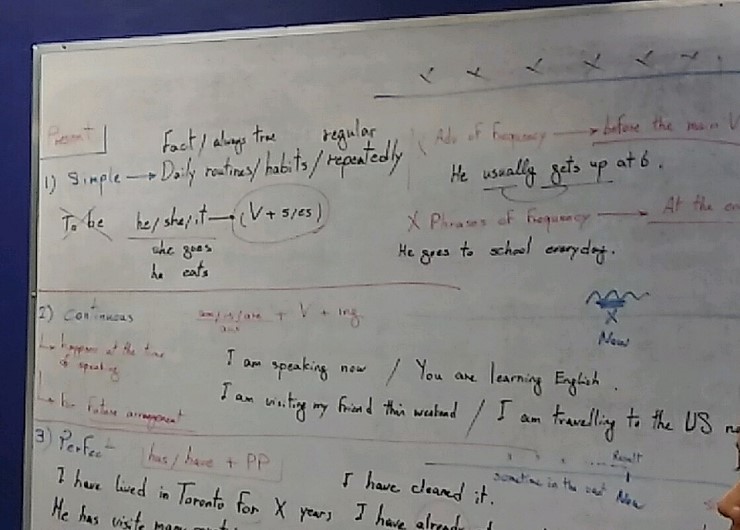 Present
Fact / always true regular
1) Simple → Daily routines / habits / repeatedly
To be he / she / it → (V + s / es)
she goes
he eats
Adv of frequency → before the main V
He usually gets up at 6.
X Phrases of frequency → At the en
He goes to school everyday.
2) Continuous am / is / are + V + ing
happens at the time
of speaking
for future arrangement
Now
I am speaking now / You are learning English.
I am visiting my friend this weekend / I am travelling to the US
3) Perfect has / have + PP
Result
sometime in the past Now
I have lived in Toronto for X years I have cleaned it.
He has I have already